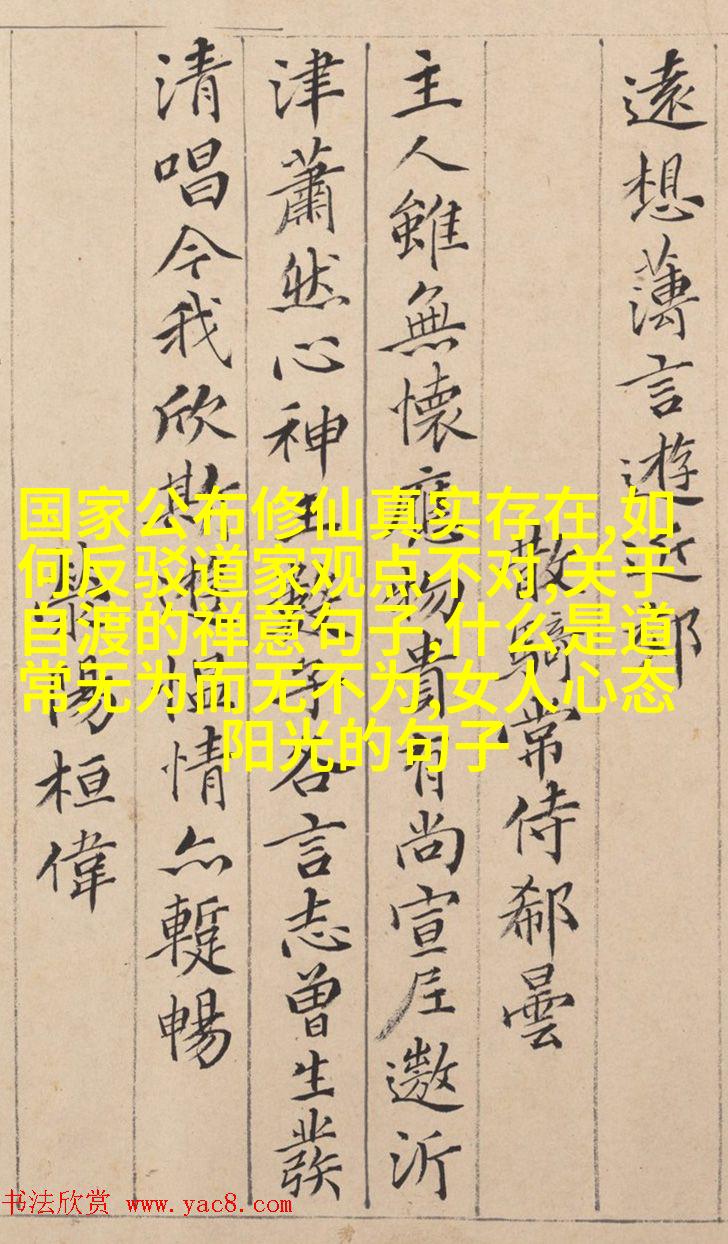 遠想薄言遊近郊
散騎常侍郗曇
主人雖無懷應物貴有尚宣尼遨沂
津蕭然心神王數子各言志曾生發
清唱今我欣斯遊慍情亦蹔暢
陽桓偉
国家公布修仙真实存在,如
何反驳道家观点不对,关于
自渡的禅意句子,什么是道
常无为而无不为,女人心态
阳光的句子
书法欣赏 www.yac8.com